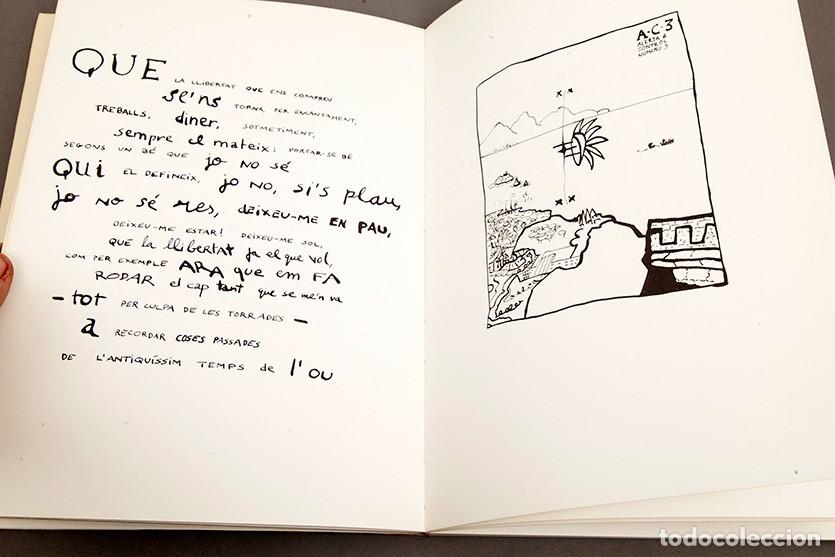 QUE LA LLIBERTAT QUE ENS COMPREU
se'ns TORNA PER ENCANTAMENT,
TREBALLS, diner, SOTMETIMENT,
sempre el mateix: PORTAR-SE BÉ
SEGONS UN BÉ QUE jo NO SÉ
QUI EL DEFINEIX, jo NO, si's plau,
jo NO sé res, DEIXEU-ME EN PAU,
DEIXEU-ME ESTAR! DEIXEU-ME SOL,
QUE la LLIBERTAT ja el que vol,
COM PER EXEMPLE ARA que em FA
RODAR el cap tant que se me'n va
- tot PER CULPA DE LES TORRADES -
a RECORDAR COSES PASSADES
DE L'ANTIQUÍSSIM TEMPS de l'OU
A·C·3
ALERTA A
CONTROL
NÚMERO 3
todocoleccion